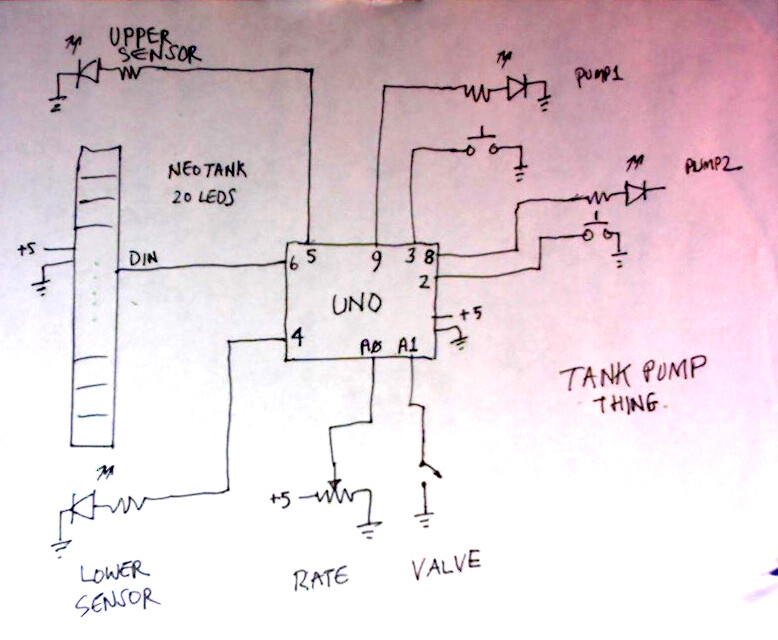 UPPER
SENSOR
PUMP1
PUMP2
NEOTANK
20 LEDS
+5
DIN
6
5
9
3
8
2
UNO
+5
4
A0
A1
TANK PUMP
THING.
+5
LOWER
SENSOR
RATE
VALVE